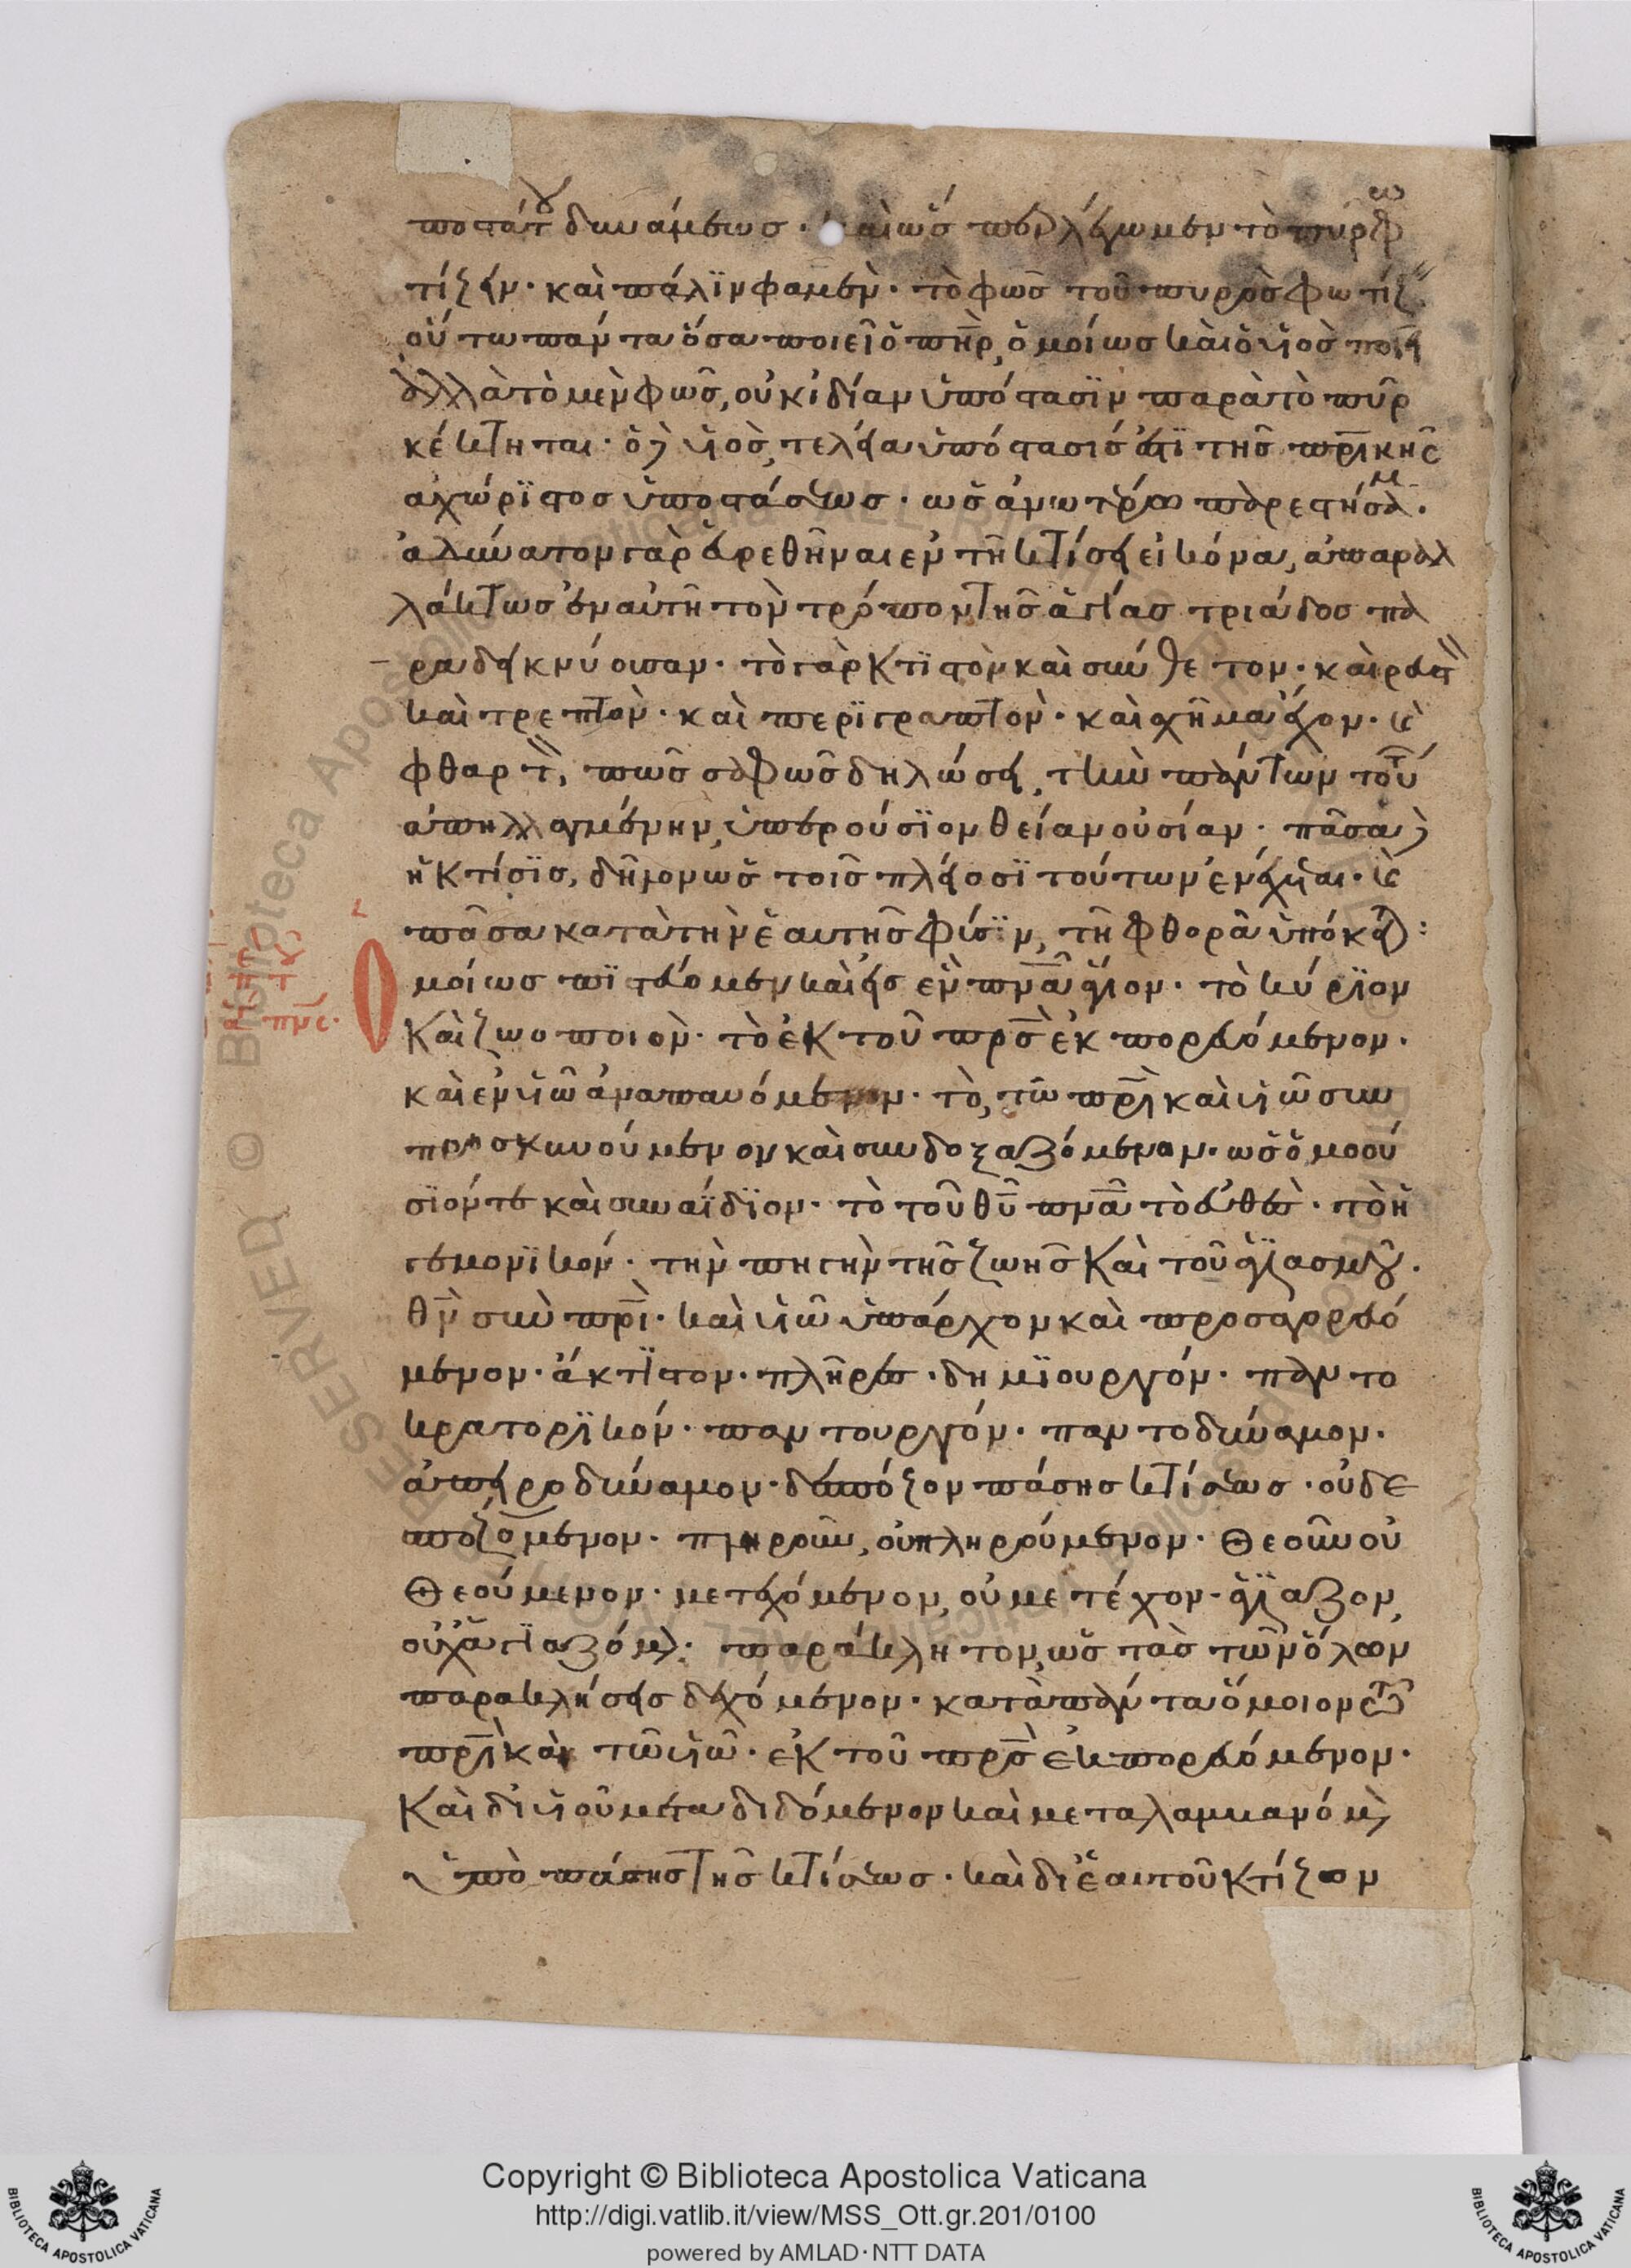 ποστάτου δυνάμεως· καὶ ὥσπερ λέγωμεν τὸ πῦρ φω
τίζειν· καὶ πάλϊν φαμεν· τὸ φῶς τοῦ πυρρὸς φωτίζει
οὕτω πάντα ὅσα ποιεῖ ὁ πηρ, ὁμοίως καὶ ὁ υἱὸς ποιεῖ
ἀλλὰ τὸ μὲν φῶς, οὐκ ἰδίαν ὑπόστασϊν παρὰ τὸ πῦρ
κέκτηται· ὁ δὲ υἱὸς, τελεία ὑπόστασις ἐστϊ τῆς πρικῆς
ἀχώρϊστος ὑποστάσεως· ὡς ἀνωτέρω παρεστήσαμεν·
ἀδύνατον γὰρ εὑρεθῆναι ἐν τῆ κτίσει εἰκόνα, ἀπαραλ
λάκτως ἐν αὐτῆ τὸν τρόπον τῆς ἁγίας τριάδος πα
ραδεικνύουσαν· τὸ γὰρ κτϊστὸν καὶ σύνθετον· καὶ ρευστὸν
καὶ τρεπτὸν· καὶ περϊγραπτὸν· καὶ σχῆμα ἔχον· καὶ
φθαρτὸν, πῶς σαφῶς δηλώσει, τὴν πάντων τούτων
ἀπηλλαγμένην, ὑπερούσϊον θείαν οὐσίαν· πᾶσα δὲ
ἡ κτίσϊς, δῆλον ὡς τοῖς πλείοσϊ τούτων ἐνέχεται· καὶ
πᾶσα κατὰ τὴν ἑαυτῆς φύσϊν, τῆ φθορᾶ ὑπόκειται:
Ὁμοίως πϊστεύομεν καὶ εἰς ἓν πνᾶ ἅγιον· τὸ κύρϊον
καὶ ζωοποιὸν· τὸ ἐκ τοῦ πρς ἐκπορευόμενον·
καὶ ἐν υἱῶ ἀναπαυόμενον· τὸ, τῶ πρι καὶ υἱῶ συν
προσκυνούμενον καὶ συνδοξαζόμενον· ὡς ὁμοού
σϊόν τε καὶ συναΐδϊον· τὸ τοῦ θυ πνᾶ τὸ εὐθὲς· τὸ ἡ
γεμονϊκόν· τὴν πηγὴν τῆς ζωῆς καὶ τοῦ ἁγϊασμοῦ·
θν σὺν πρι· καὶ υἱῶ ὑπάρχον καὶ προσαγορευό
μενον· ἄκτϊστον· πλῆρες· δημϊουργόν· παντο
κρατορϊκόν· παντουργόν· παντοδύναμον·
ἀπειροδύναμον· δεσπόζον πάσης κτίσεως· οὐ δε
σποζόμενον· πληροῦν, οὐ πληρούμενον· θεοῦν οὐ
θεούμενον· μετεχόμενον, οὐ μετέχον· ἁγϊάζον,
οὐχ ἁγϊαζόμενον· παράκλητον, ὡς τὰς τῶν ὅλων
παρακλήσεις δεχόμενον· κατὰ πάντα ὅμοιον τῶ
πρι καὶ τῶ υἱῶ· ἐκ τοῦ πρς ἐκπορευόμενον·
καὶ δι' υἱοῦ μεταδιδόμενον καὶ μεταλαμβανόμενον
ὑπὸ πάσης τῆς κτίσεως· καὶ δι' ἑαυτοῦ κτίζον